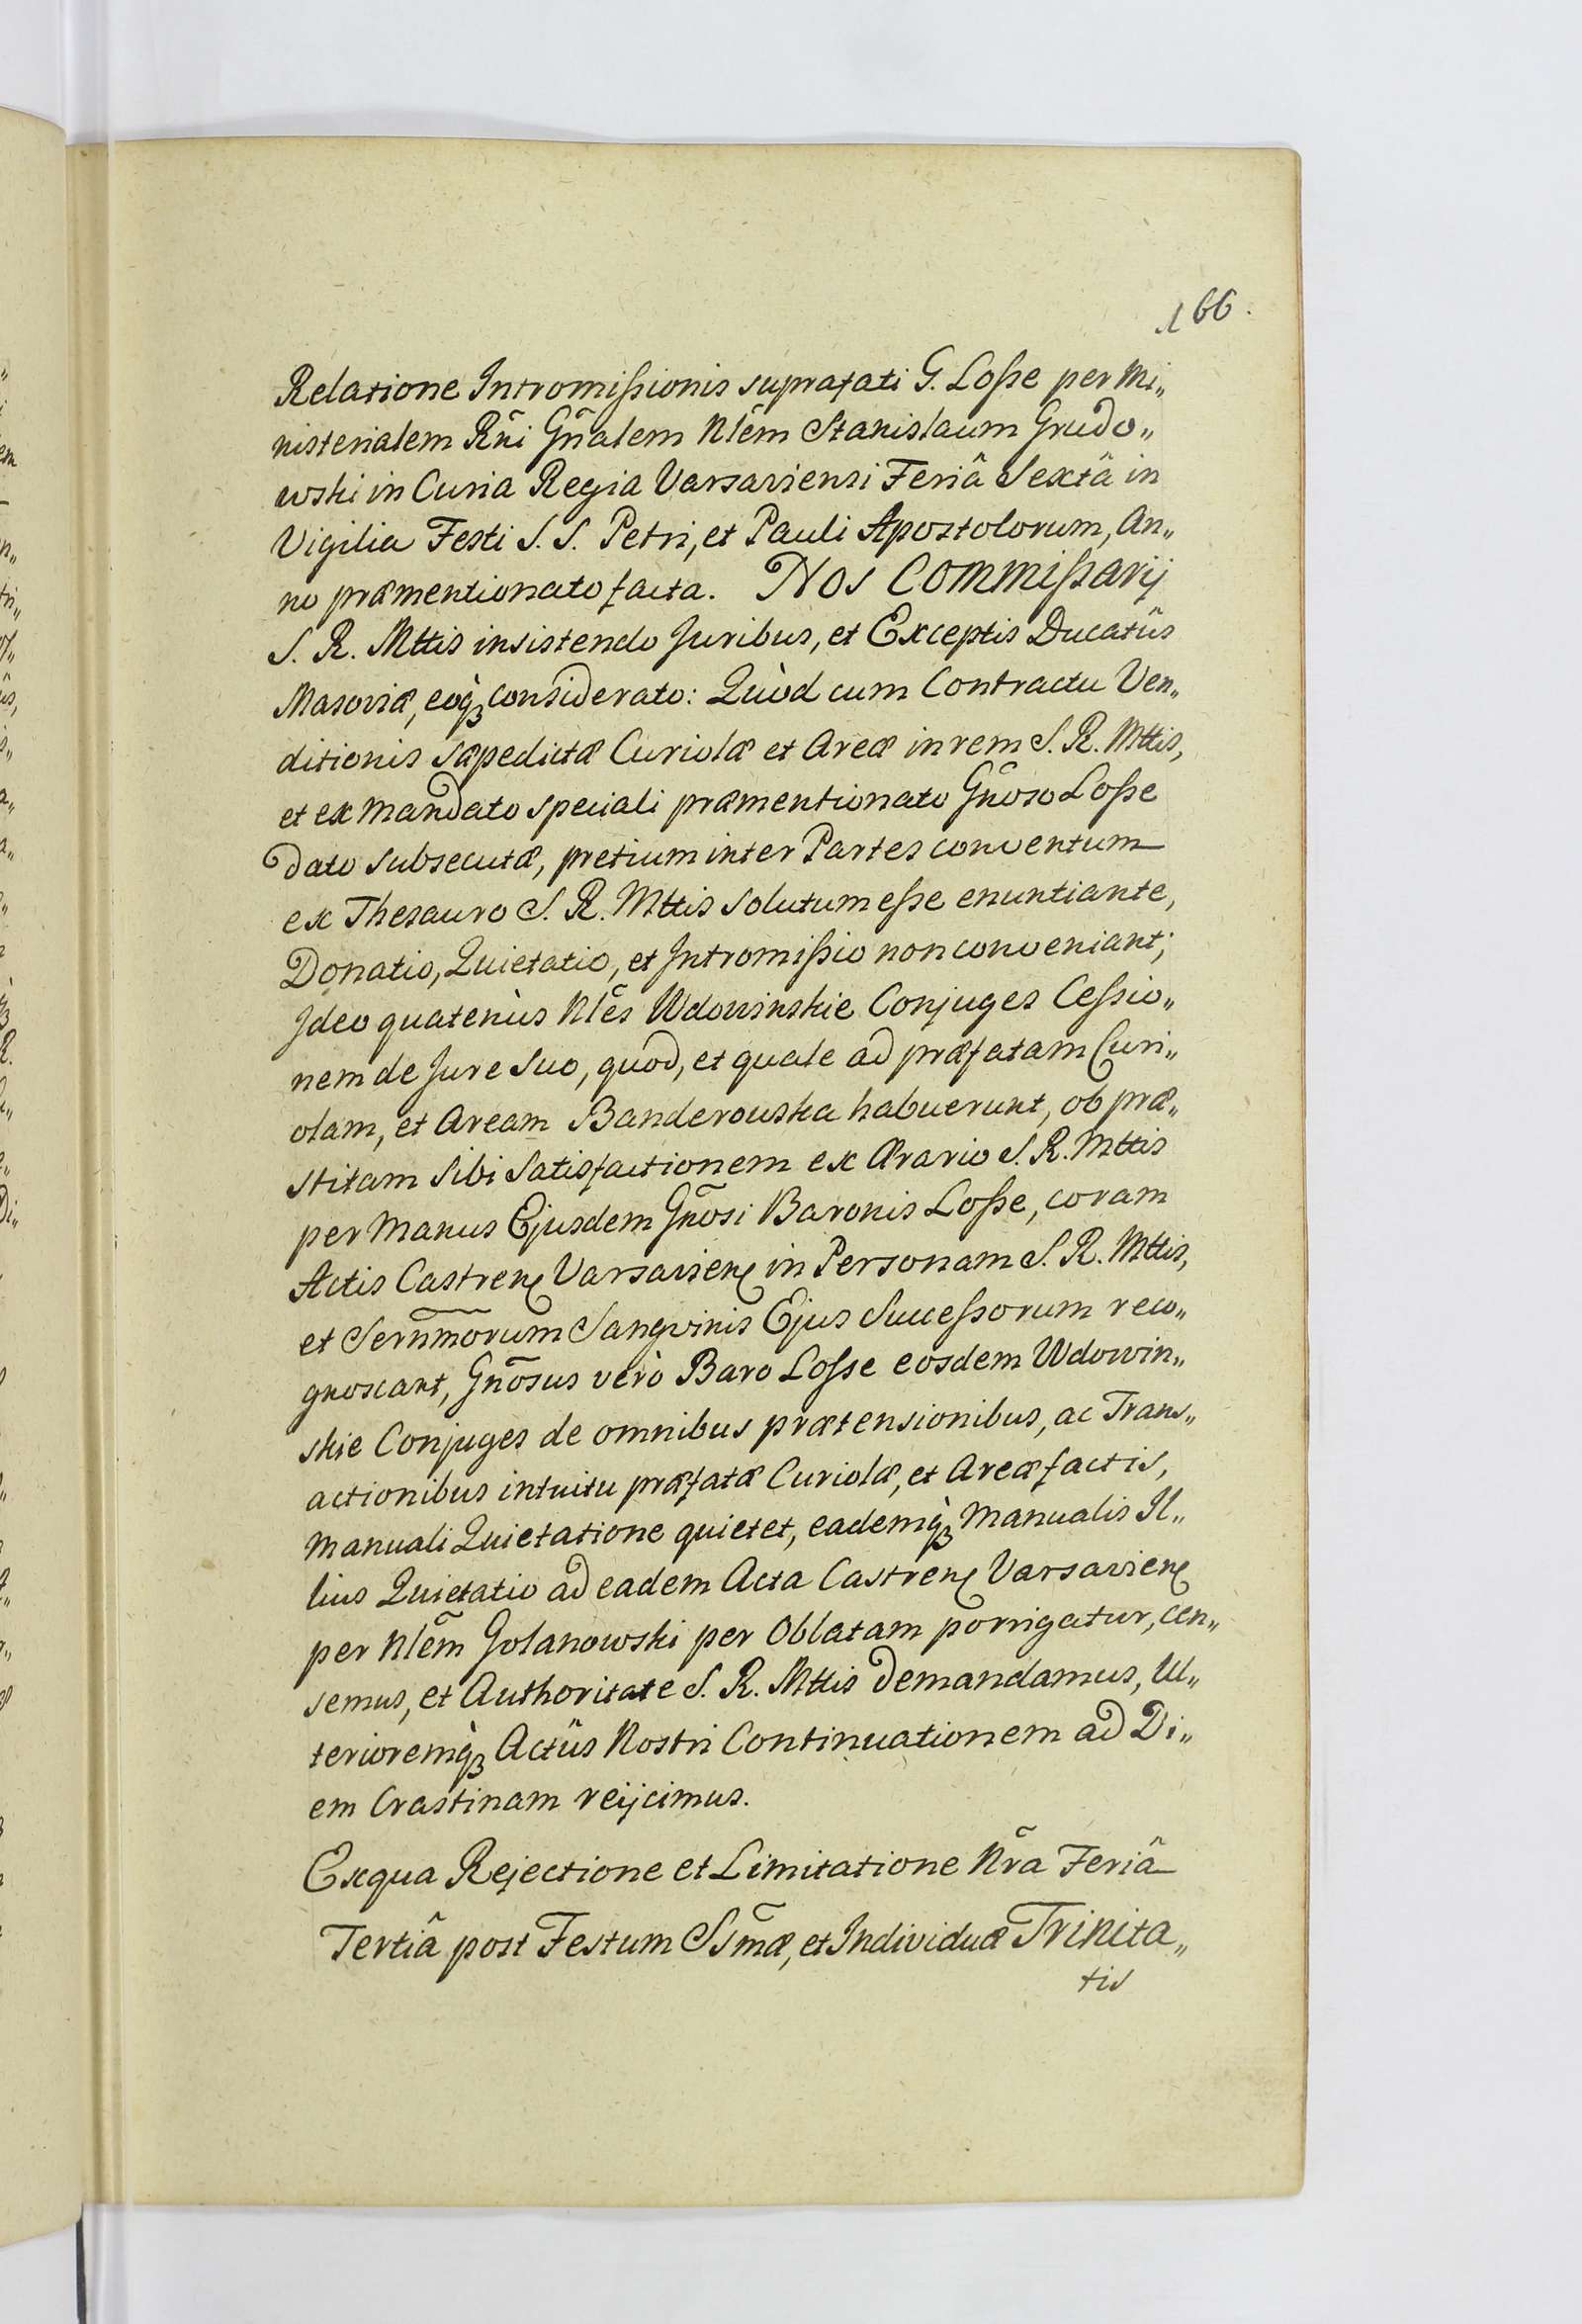 166.
Relatione Intromißionis suprafati G. Loße per Mi„
nisterialem Rñi Gñalem Nlẽm Stanislaum Grudo„
wski in Curia Regia Varsaviensi Feriâ Sextâ in
Vigilia Festi S. S. Petri, et Pauli Apostolorum, An„
no præmentionato facta. Nos Commißarij
S. R. Mttis insistendo Juribus, et Exceptis Ducatûs
Masoviæ, eoq̀ꝫ considerato: Quòd cum Contractu Ven„
ditionis sæpedictæ Curiolæ et Areæ in rem S. R. Mttis,
et ex Mandato speciali præmentionato Gñoso Loße
dato subsecutæ, pretium inter Partes conventum
ex Thesauro S. R. Mttis solutum eße enuntiante,
Donatio, Quietatio, et Intromißio non conveniant;
Ideo quatenùs Nlẽs Wdowinskie Conjuges Ceßio„
nem de Jure suo, quod, et quale ad præfatam Curi„
olam, et Aream Banderouska habuerunt, ob præ„
stitam sibi Satisfactionem ex Ærario S. R. Mttis
per Manus Ejusdem Gñosi Baronis Loße, coram
Actis Castren̨ Varsavien̨ in Personam S. R. Mttis,
et Serñmorum Sangvinis Ejus Succeßorum reco„
gnoscant, Gñosus verò Baro Loße eosdem Wdowin„
skie Conjuges de omnibus prætensionibus, ac Trans„
actionibus intuitu præfatæ Curiolæ, et Areæ factis,
Manuali Quietatione quietet, eademq̀ꝫ Manualis Il„
lius Quietatio ad eadem Acta Castren̨ Varsavien̨
per Nlẽm Golanowski per Oblatam porrigatur, cen„
semus, et Authoritate S. R. Mttis demandamus, Ul„
terioremq̀ꝫ Actûs Nostri Continuationem ad Di„
em Crastinam reijcimus.
Ex qua Rejectione et Limitatione Nr̃a Feriâ
Tertiâ post Festum SSm̃æ, et Individuæ Trinita„
tis